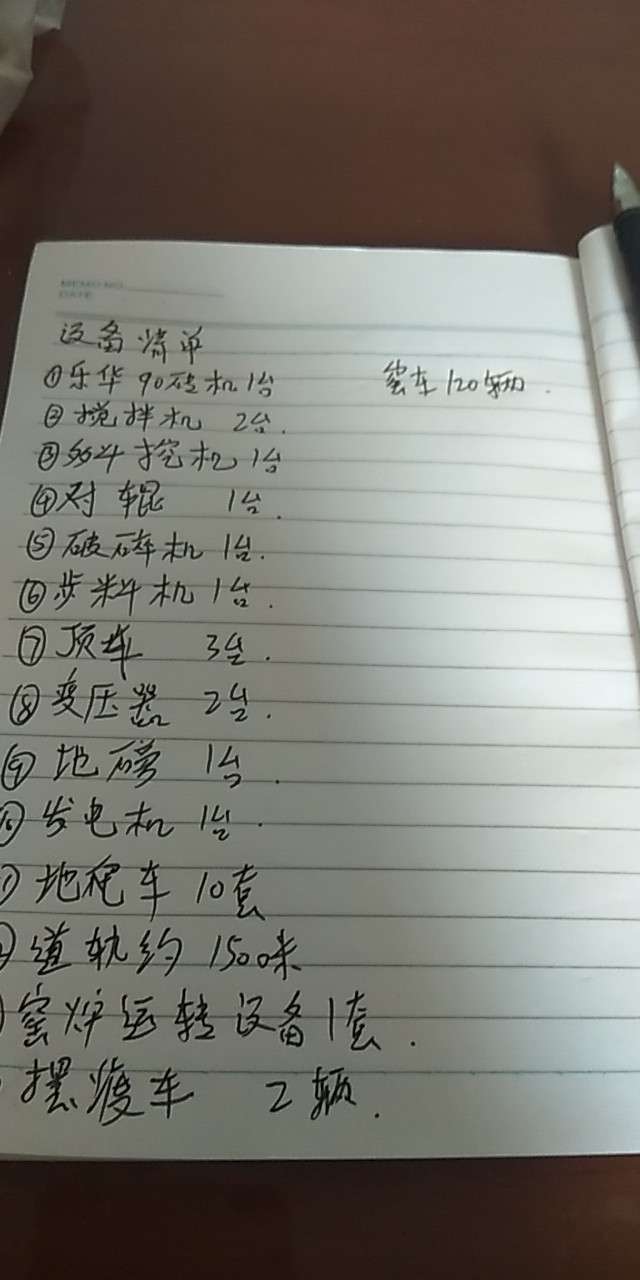 设备清单
①乐华90砖机1台 窑车120辆.
②搅拌机 2台.
③多斗挖机1台
④对辊 1台.
⑤破碎机1台.
⑥步料机1台.
⑦顶车 3台.
⑧变压器 2台.
⑨地磅 1台.
⑩发电机1台.
地爬车10套
道轨约1500米
窑炉运转设备1套.
摆渡车 2辆.